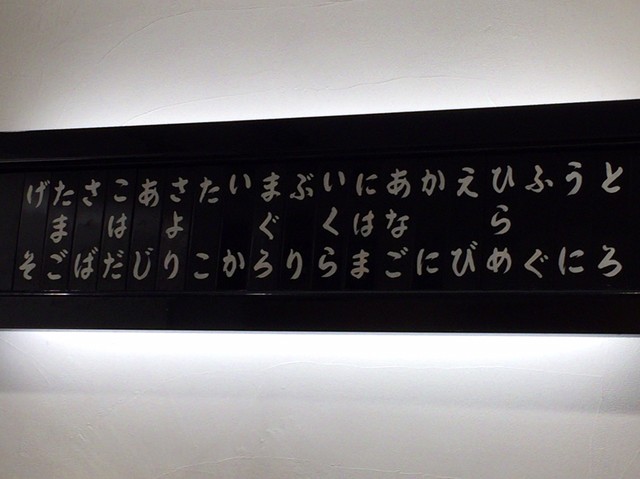 とろ
うに
ふぐ
ひらめ
えび
かに
あなご
にはま
いくら
ぶり
まぐろ
いか
たこ
さより
あじ
こはだ
さば
たまご
げそ